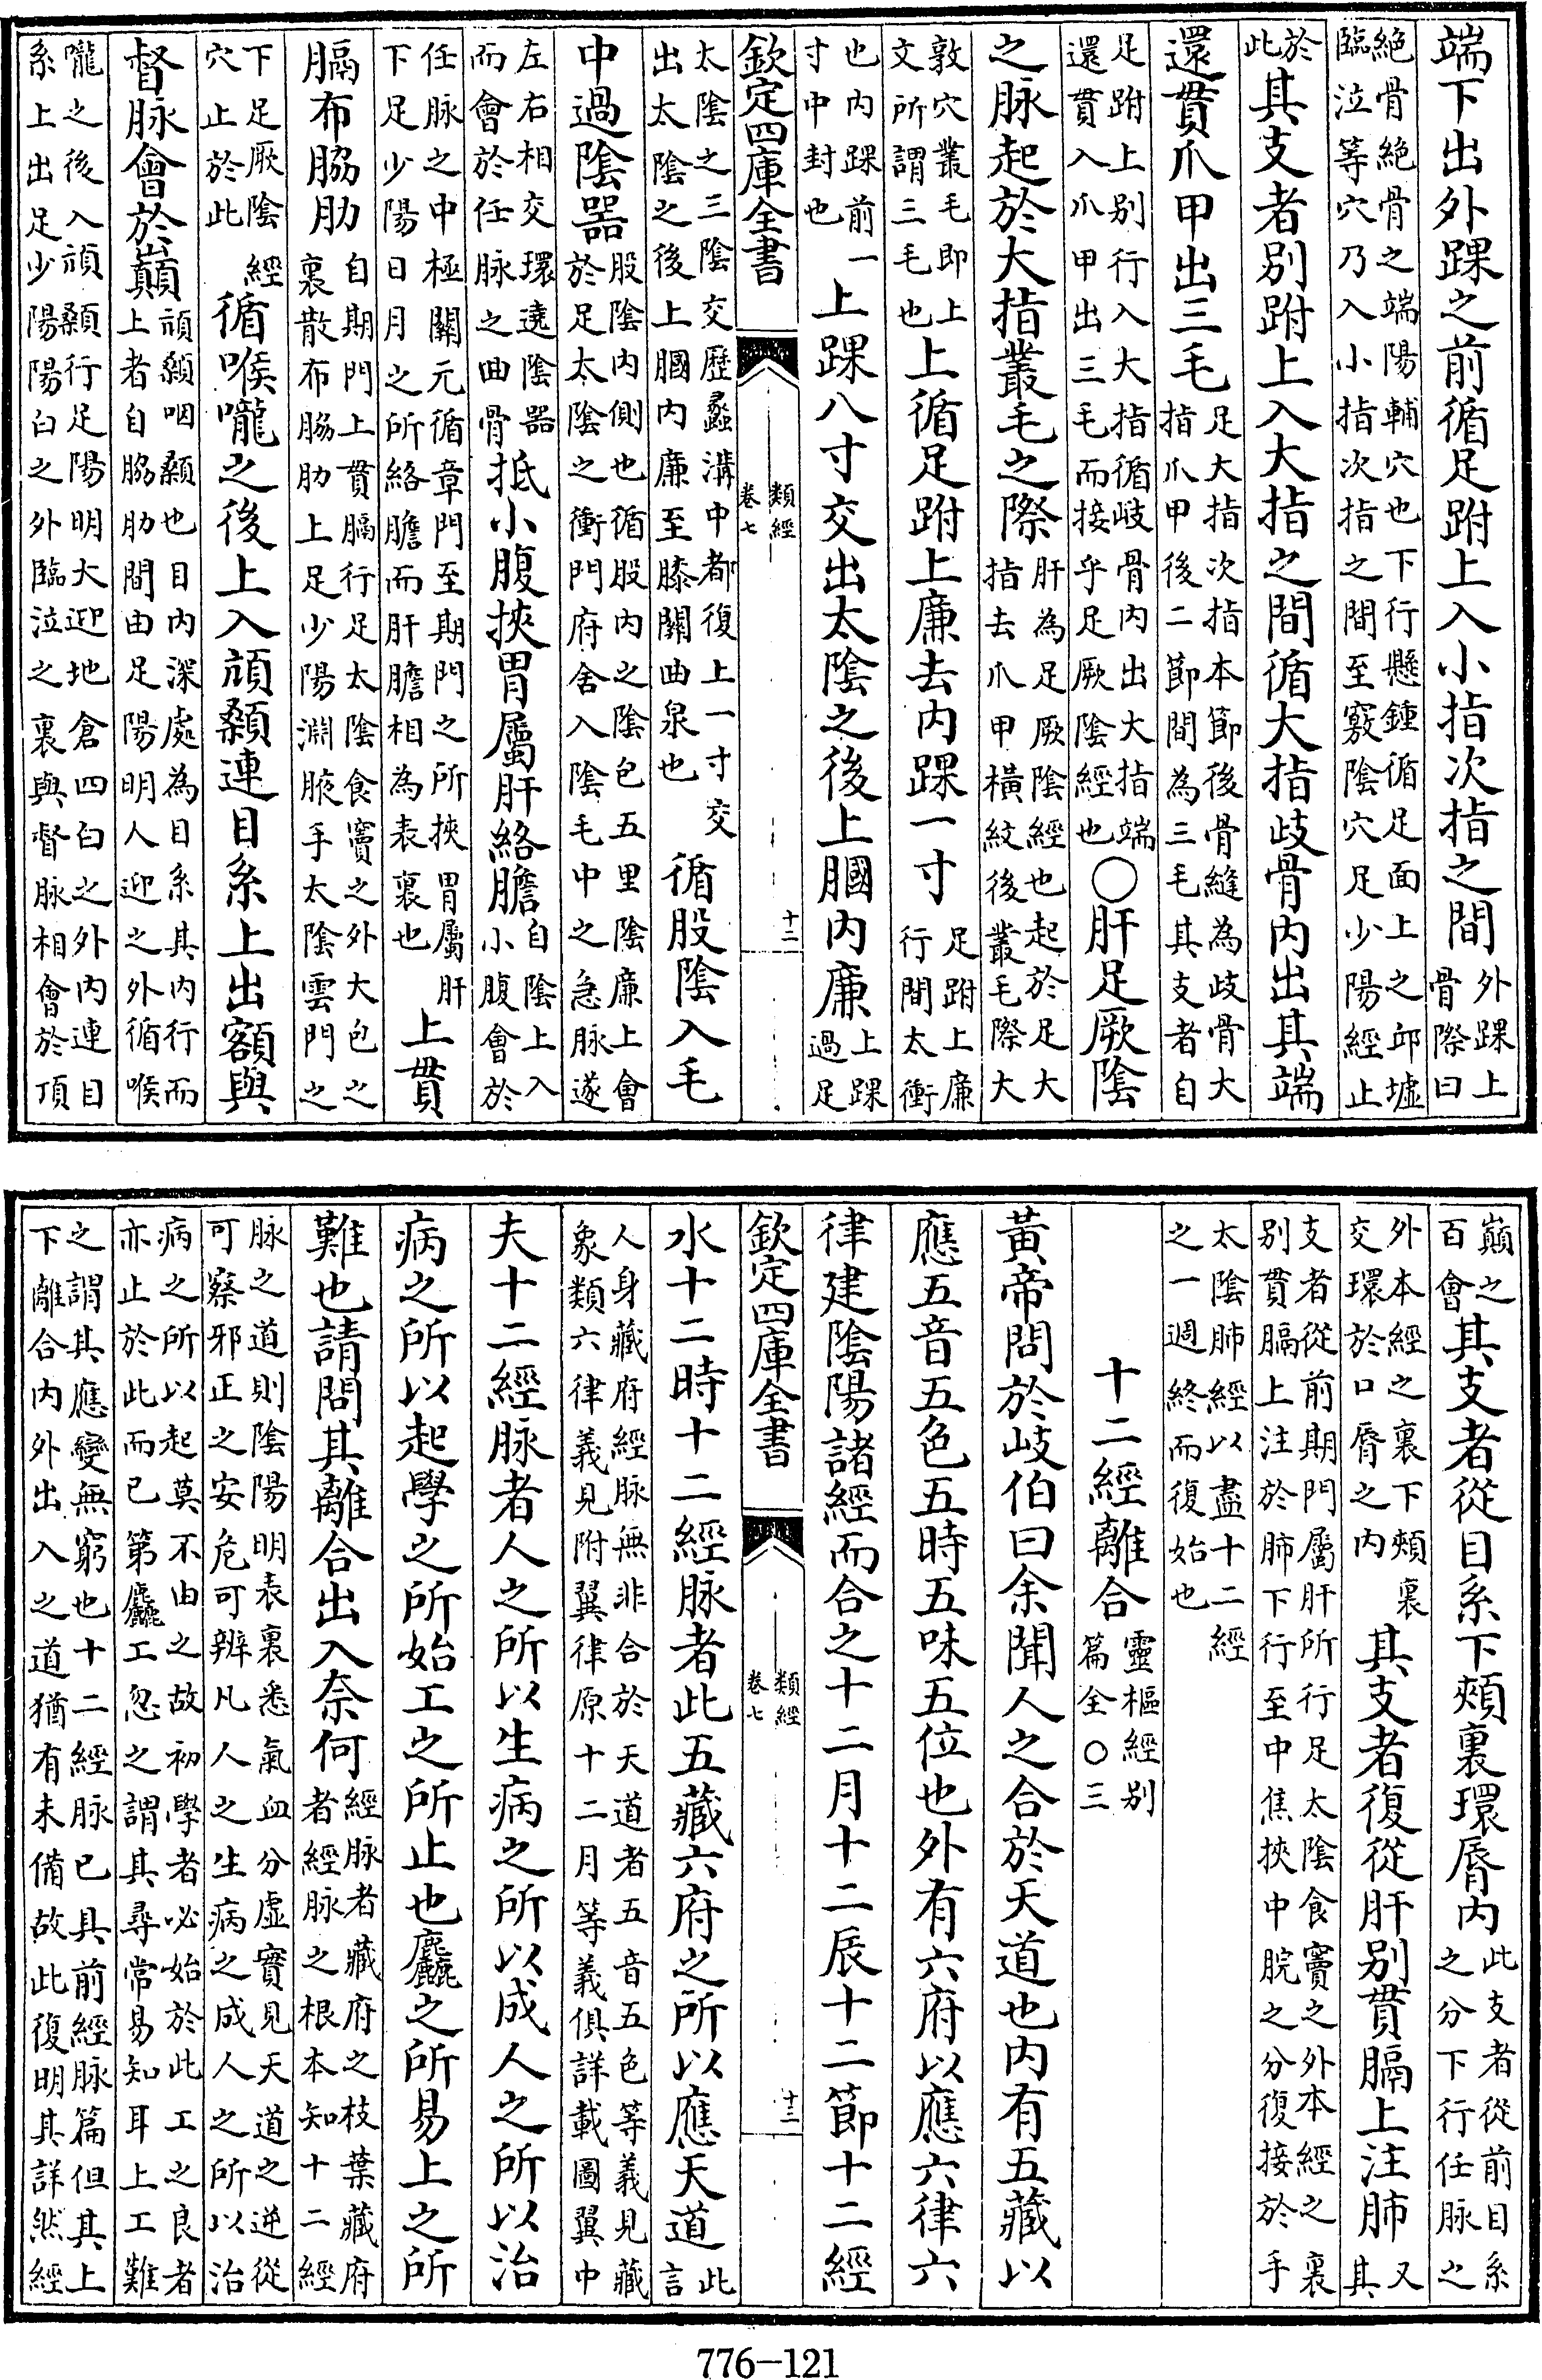 端下出外踝之前循足跗上入小指次指之間外踝上骨際曰
絶骨絶骨之端陽輔穴也下行懸鍾循足面上之邱墟臨泣等穴乃入小指次指之間至竅陰穴足少陽經止
於此其支者别跗上入大指之間循大指歧骨内出其端
還貫爪甲出三毛足大指次指本節後骨縫為歧骨大指爪甲後二節間為三毛其支者自
足跗上别行入大指循歧骨内出大指端還貫入爪甲出三毛而接乎足厥陰經也○肝足厥陰
之脉起於大指叢毛之際肝為足厥陰經也起於足大指去爪甲橫紋後叢毛際大
敦穴叢毛即上文所謂三毛也上循足跗上廉去内踝一寸足跗上廉行間太衝
也内踝前一寸中封也上踝八寸交出太陰之後上膕内廉上踝過足
欽定四庫全書 類經卷七 十二
太陰之三陰交歷蠡溝中都復上一寸交出太陰之後上膕内廉至膝關曲泉也循股陰入毛
中過陰器股陰内側也循股内之陰包五里陰廉上會於足太陰之衝門府舍入陰毛中之急脉遂
左右相交環遶陰器而會於任脉之曲骨抵小腹挾胃屬肝絡膽自陰上入小腹會於
任脉之中極關元循章門至期門之所挾胃屬肝下足少陽日月之所絡膽而肝膽相為表裏也上貫
膈布脇肋自期門上貫膈行足太陰食竇之外大包之裏散布脇肋上足少陽淵腋手太陰雲門之
下足厥陰經穴止於此循喉嚨之後上入頏顙連目系上出額與
督脉會於巔頏顙咽顙也目内深處為目系其内行而上者自脇肋間由足陽明人迎之外循喉
嚨之後入頏顙行足陽明大迎地倉四白之外内連目系上出足少陽陽白之外臨泣之裏與督脉相會於頂
巔之百會其支者從目系下頰裏環脣内此支者從前目系之分下行任脉之
外本經之裏下頰裏交環於口脣之内其支者復從肝别貫膈上注肺又其
支者從前期門屬肝所行足太陰食竇之外本經之裏别貫膈上注於肺下行至中焦挾中脘之分復接於手
太陰肺經以盡十二經之一週終而復始也
十二經離合靈樞經别篇全○三
黄帝問於歧伯曰余聞人之合於天道也内有五藏以
應五音五色五時五味五位也外有六府以應六律六
律建陰陽諸經而合之十二月十二辰十二節十二經
欽定四庫全書 類經卷七 十三
水十二時十二經脉者此五藏六府之所以應天道此言
人身藏府經脉無非合於天道者五音五色等義見藏象類六律義見附翼律原十二月等義俱詳載圖翼中
夫十二經脉者人之所以生病之所以成人之所以治
病之所以起學之所始工之所止也麤之所易上之所
難也請問其離合出入奈何經脉者藏府之枝葉藏府者經脉之根本知十二經
脉之道則陰陽明表裏悉氣血分虚實見天道之逆從可察邪正之安危可辨凡人之生病之成人之所以治
病之所以起莫不由之故初學者必始於此工之良者亦止於此而已第麤工忽之謂其尋常易知耳上工難
之謂其應變無窮也十二經脉已具前經脉篇但其上下離合内外出入之道猶有未備故此復明其詳然經
776-121